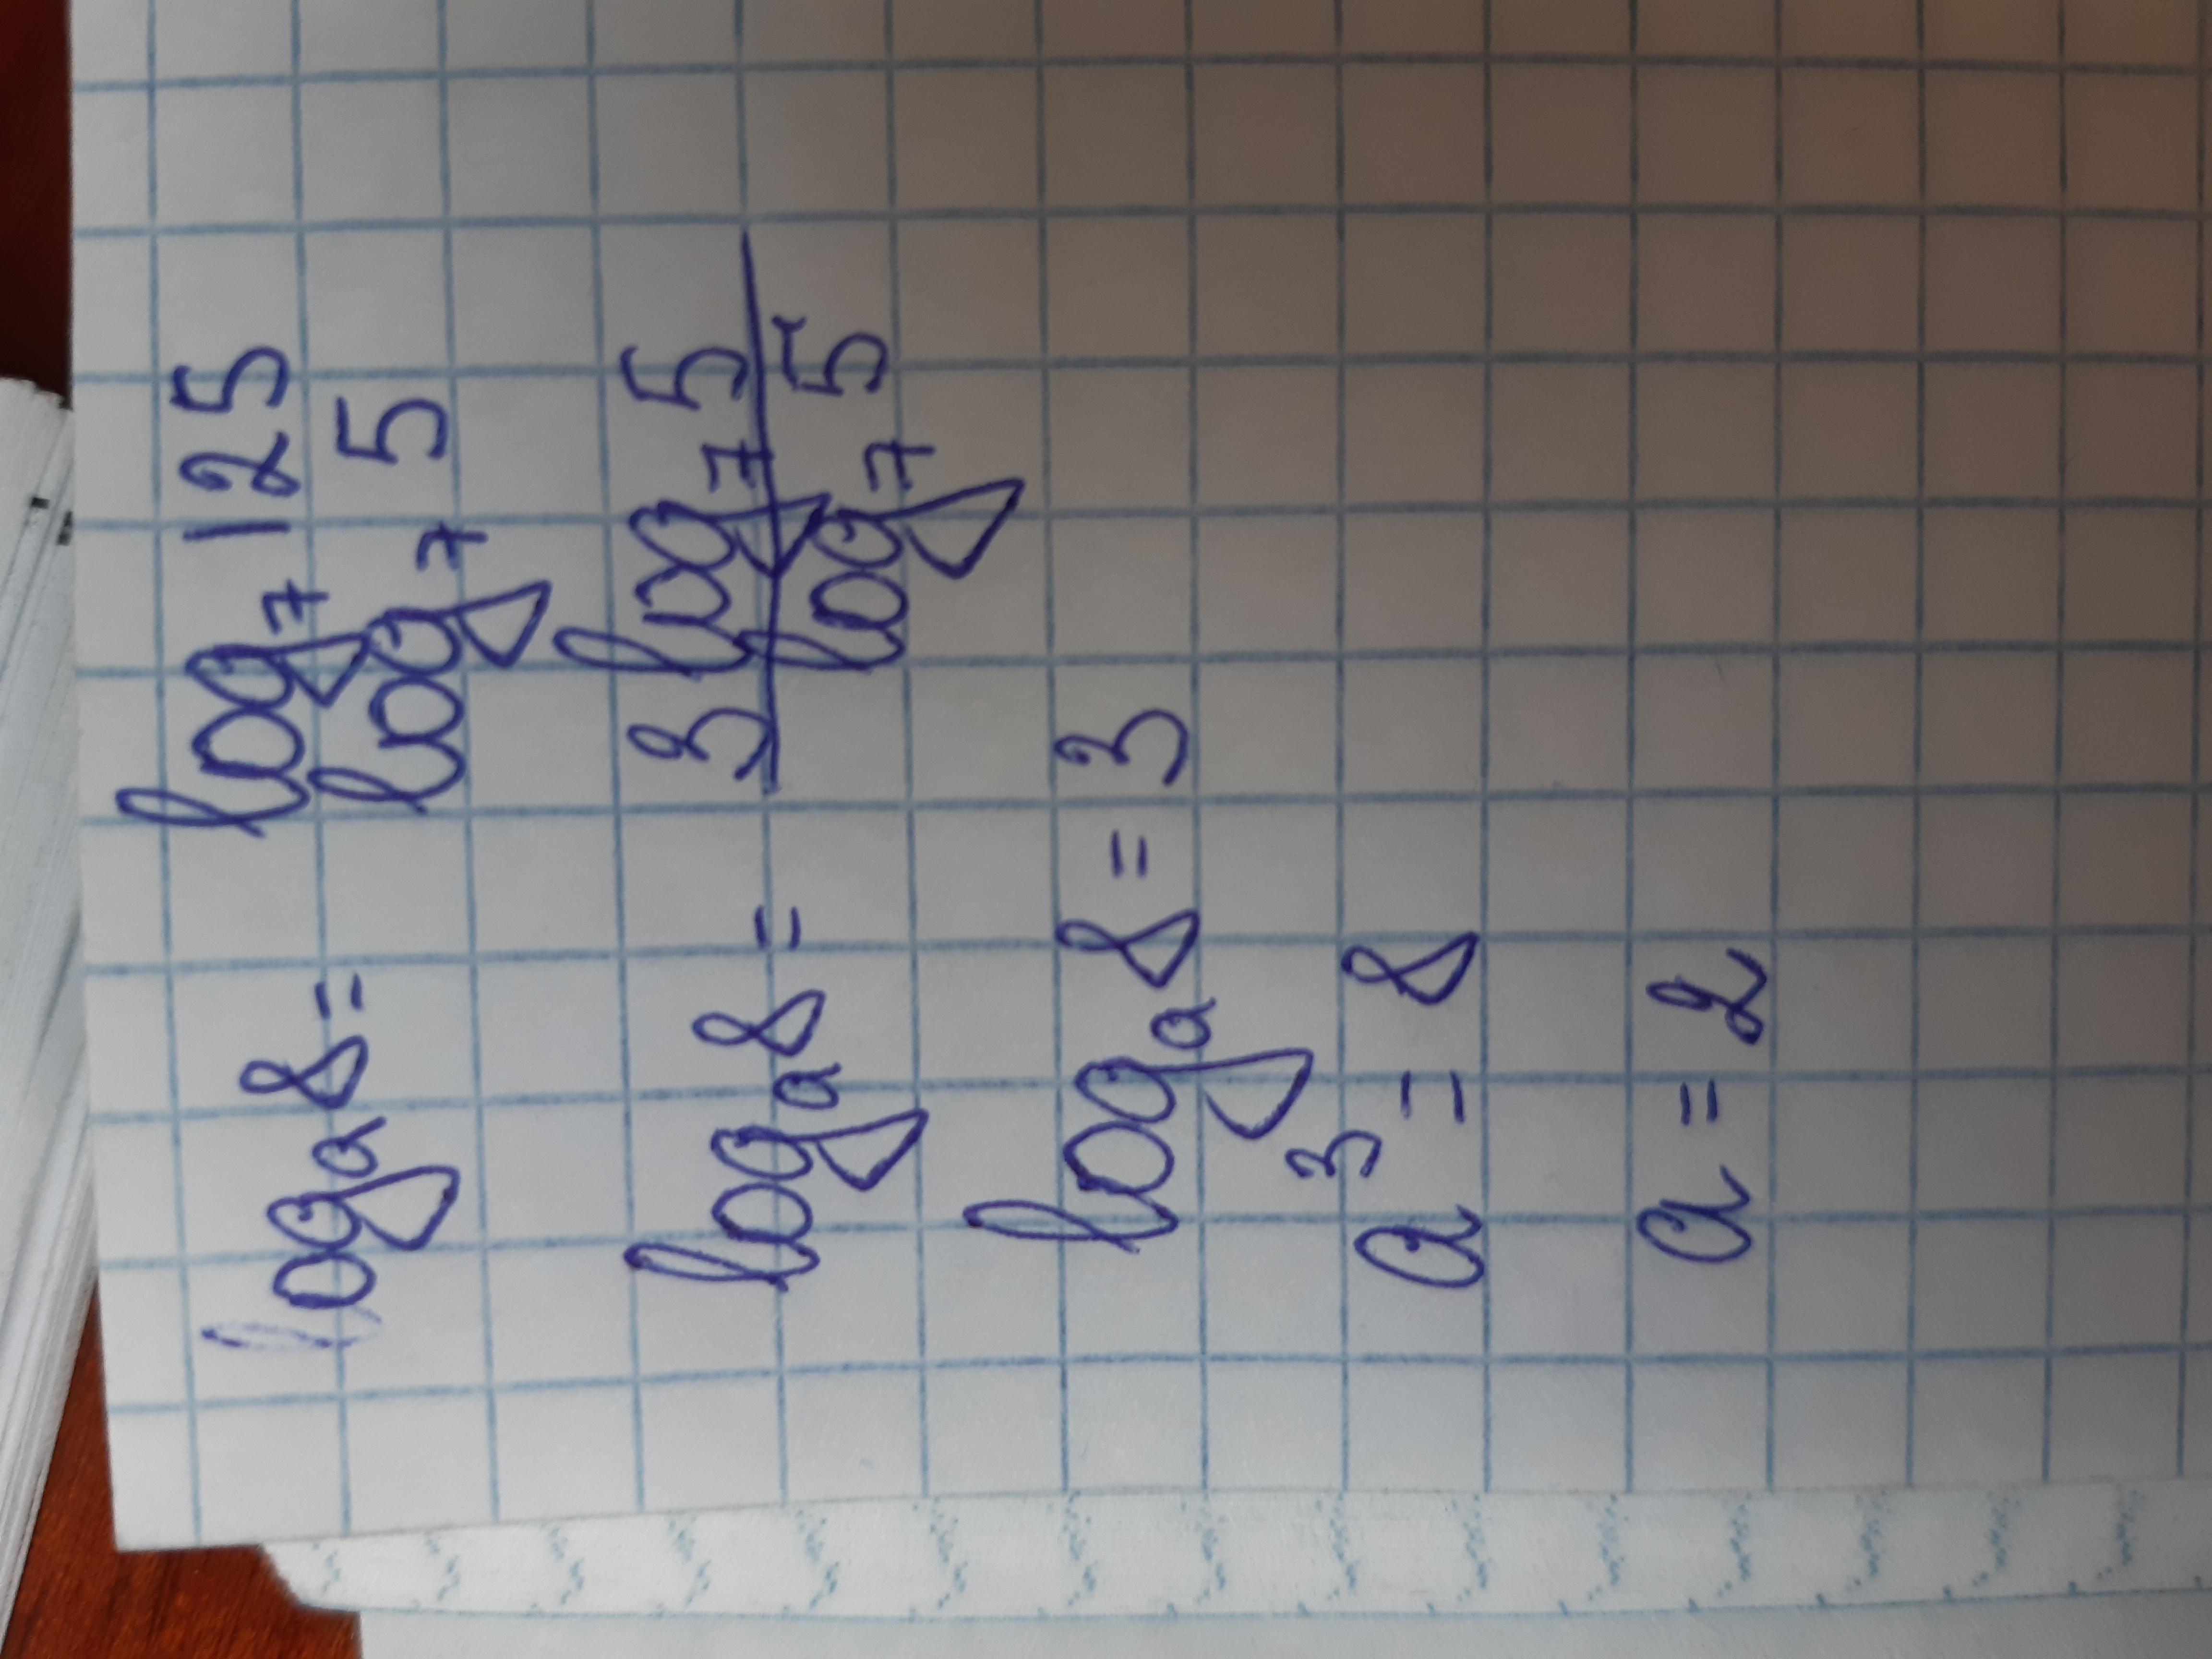 logₐ8 = log₇ 125
log₇ 5
logₐ8 = 3 log₇ 5
log₇ 5
logₐ8 = 3
a³ = 8
a = 2